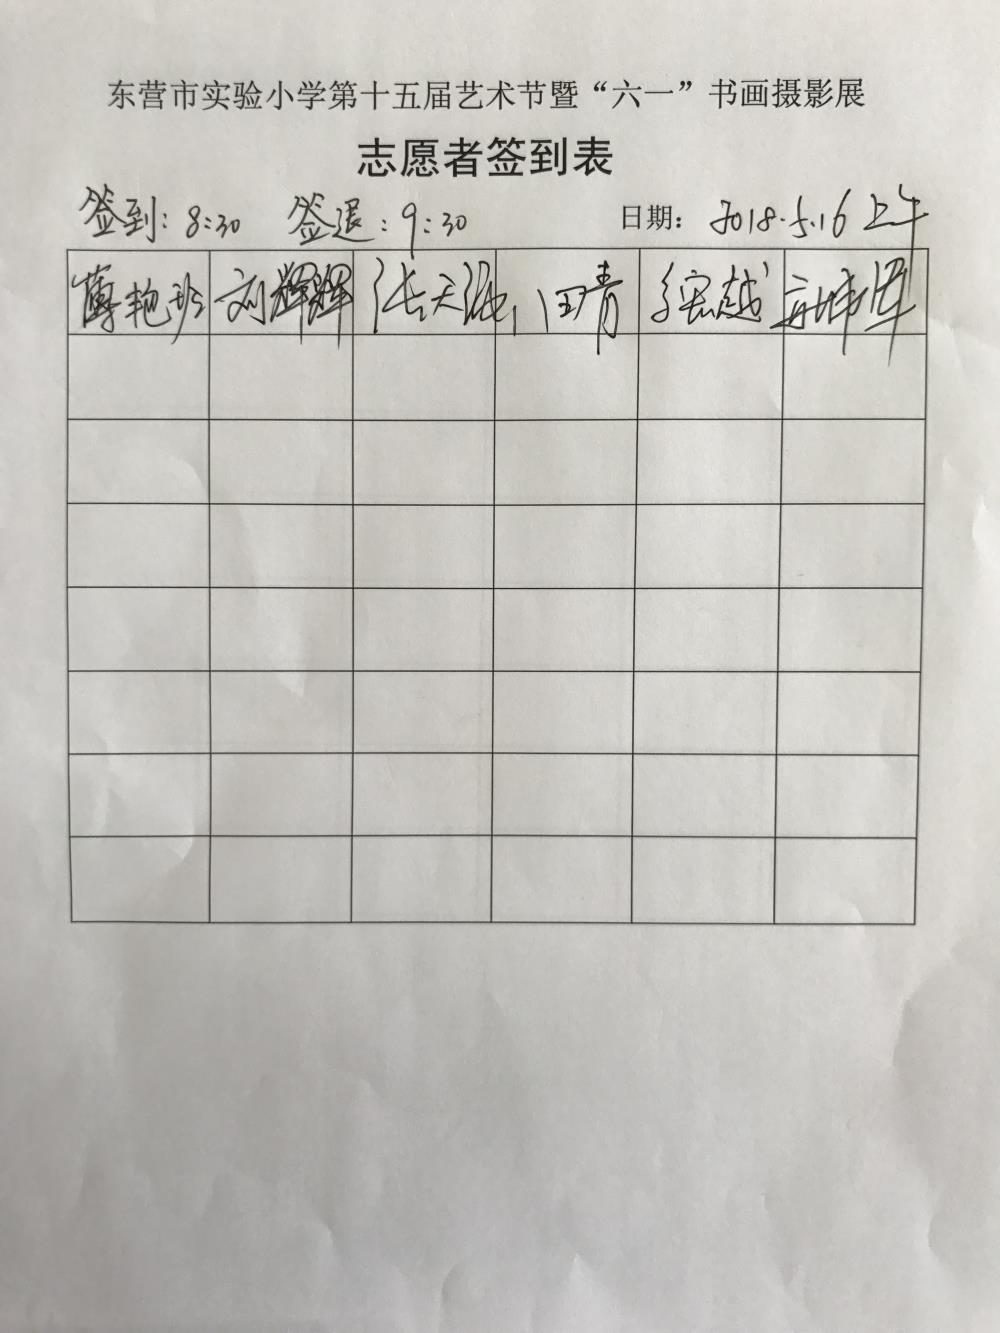 东营市实验小学第十五届艺术节暨“六一”书画摄影展
志愿者签到表
签到：8:30 签退：9:30 日期：2018.5.16 上午
薄艳玲 刘辉辉 张天泓 田青